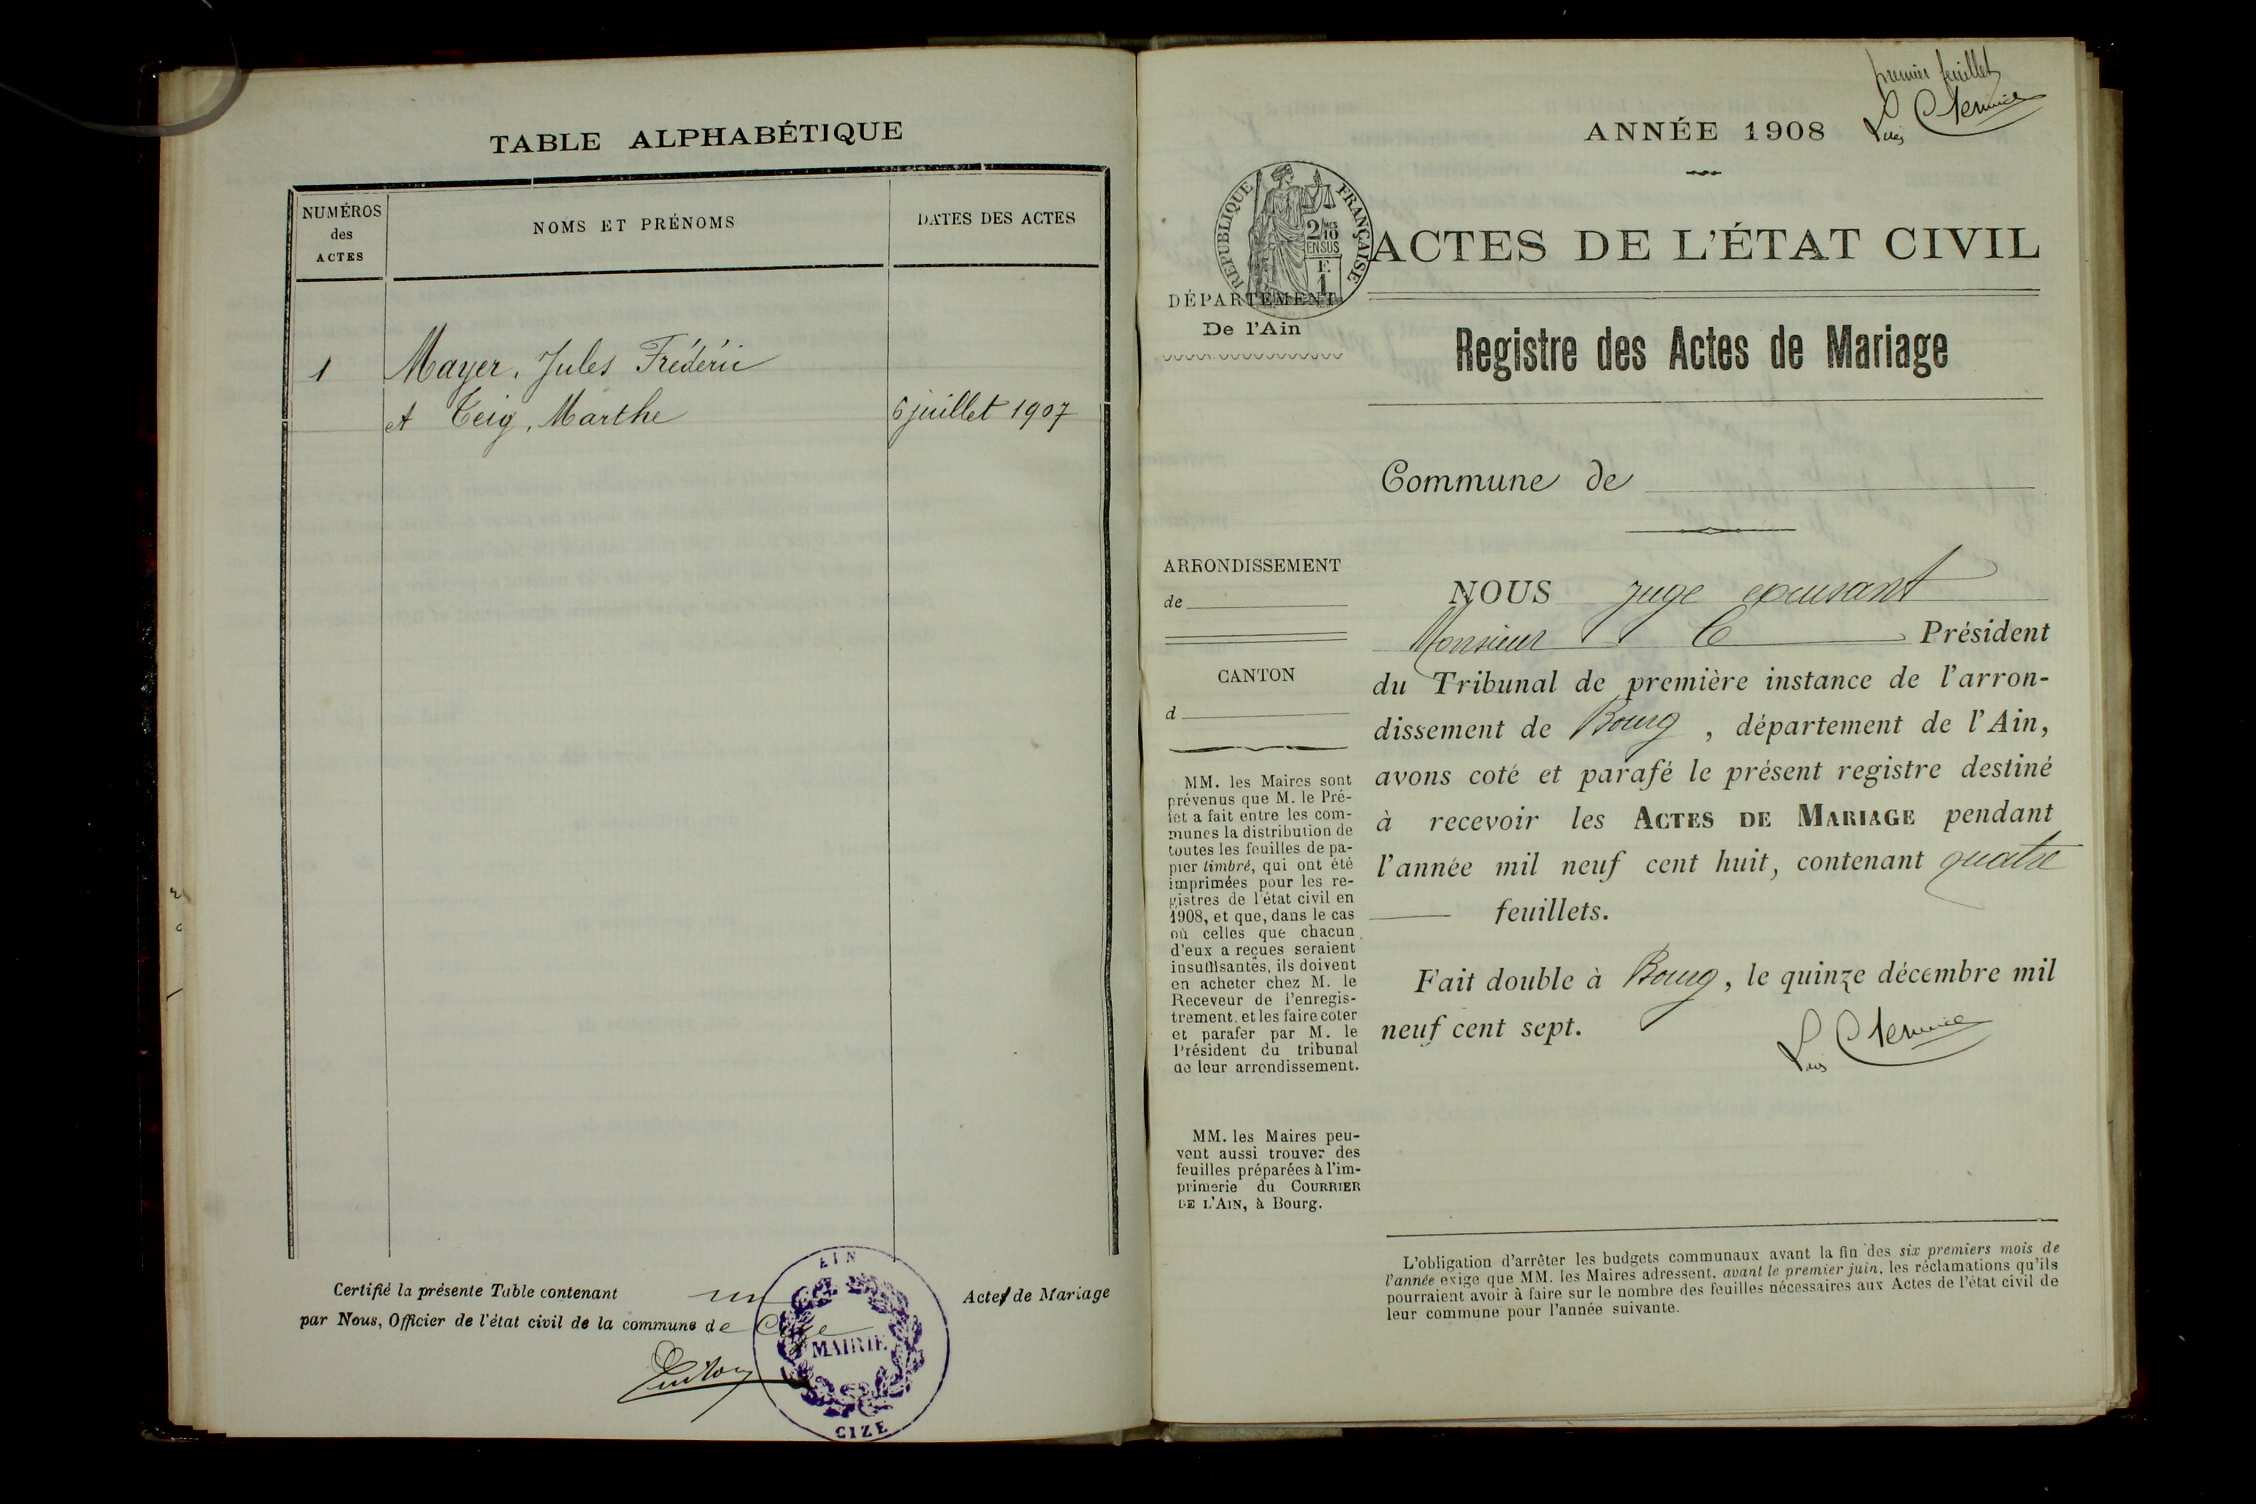 TABLE ALPHABÉTIQUE
NUMÉROS
des
ACTES
NOMS ET PRÉNOMS
DATES DES ACTES
1 Mayer, Jules Frédéric
et Teig, Marthe 6 juillet 1907
Certifié la présente Table contenant un Acte de Mariage
par Nous, Officier de l'état civil de la commune de Cize
AIN
MAIRIE
CIZE
premier feuillet
ANNÉE 1908
RÉPUBLIQUE FRANÇAISE
2/10
EN SUS
F.
1
ACTES DE L'ÉTAT CIVIL
DÉPARTEMENT
De l'Ain
Registre des Actes de Mariage
Commune de
ARRONDISSEMENT
de
CANTON
d
MM. les Maires sont
prévenus que M. le Pré-
fet a fait entre les com-
munes la distribution de
toutes les feuilles de pa-
pier timbré, qui ont été
imprimées pour les re-
gistres de l'état civil en
1908, et que, dans le cas
où celles que chacun
d'eux a reçues seraient
insuffisantes, ils doivent
en acheter chez M. le
Receveur de l'enregis-
trement, et les faire coter
et parafer par M. le
Président du tribunal
de leur arrondissement.
MM. les Maires peu-
vent aussi trouver des
feuilles préparées à l'im-
primerie du COURRIER
DE L'AIN, à Bourg.
NOUS juge
Monsieur Président
du Tribunal de première instance de l'arron-
dissement de Bourg, département de l'Ain,
avons coté et parafé le présent registre destiné
à recevoir les ACTES DE MARIAGE pendant
l'année mil neuf cent huit, contenant quatre
feuillets.
Fait double à Bourg, le quinze décembre mil
neuf cent sept.
L'obligation d'arrêter les budgets communaux avant la fin des six premiers mois de
l'année exige que MM. les Maires adressent, avant le premier juin, les réclamations qu'ils
pourraient avoir à faire sur le nombre des feuilles nécessaires aux Actes de l'état civil de
leur commune pour l'année suivante.